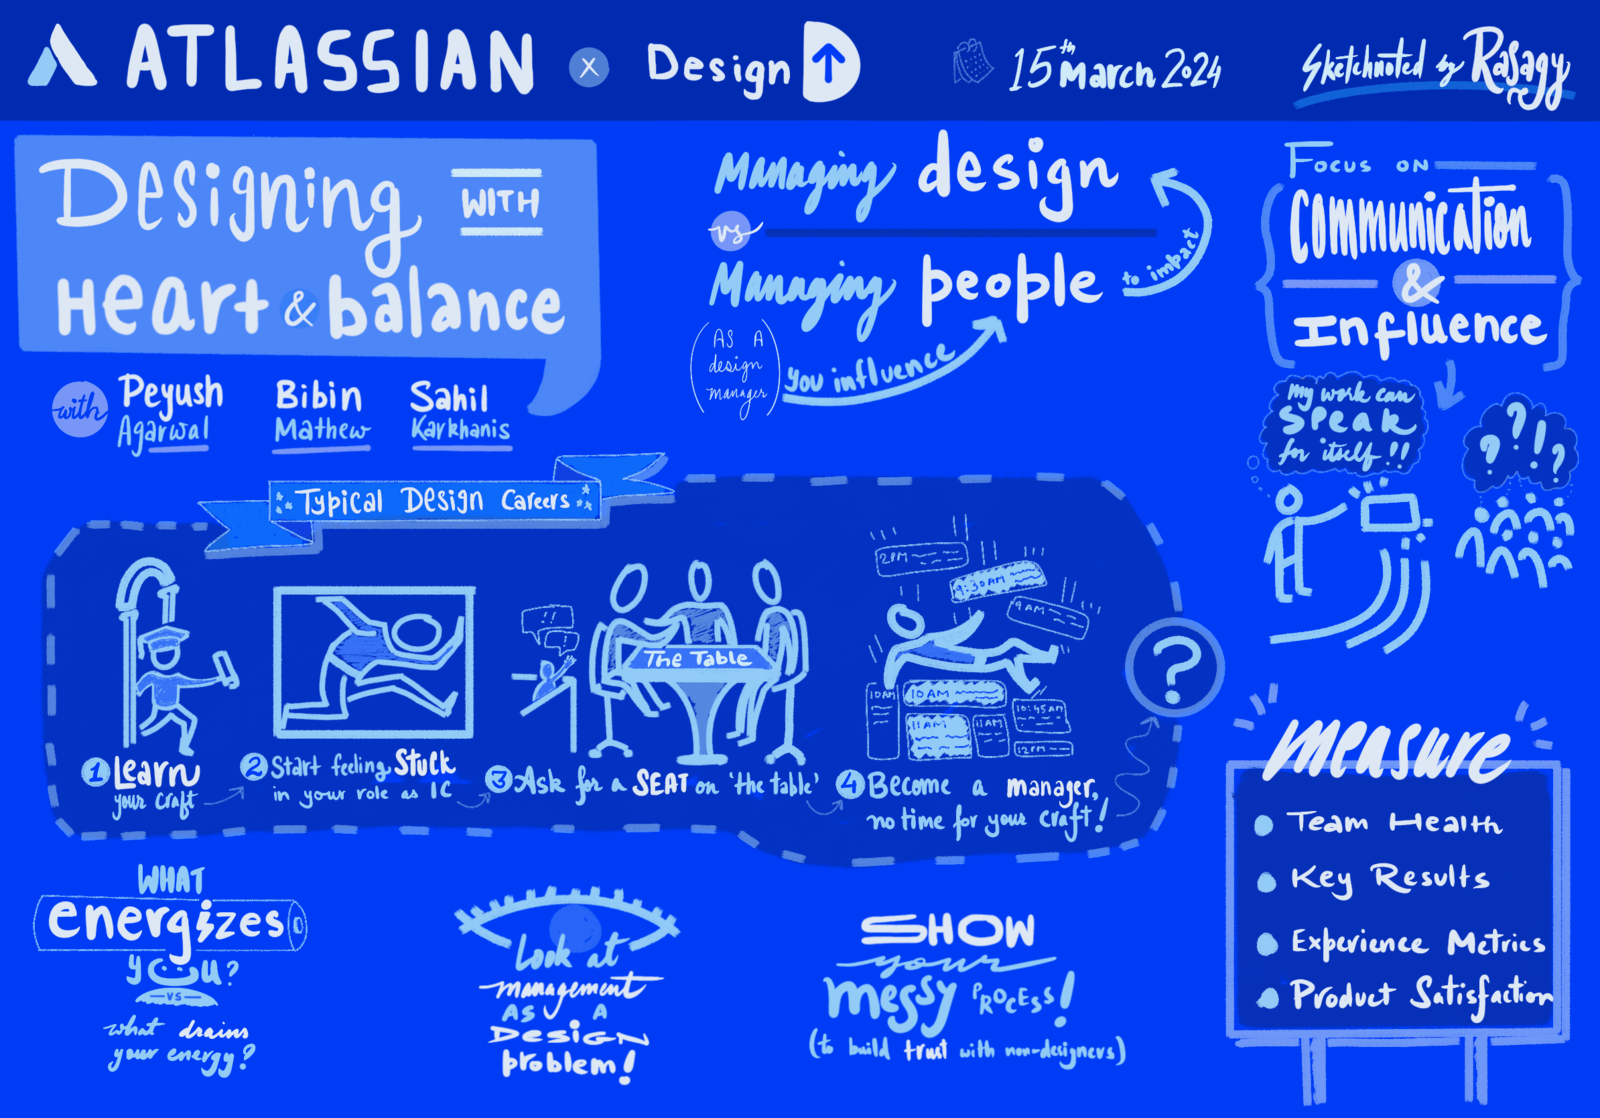 ATLASSIAN x Design UP
15th March 2024
Sketchnoted by Rasagy
Designing WITH
Heart & balance
with Peyush Agarwal
Bibin Mathew
Sahil Karkhanis
Managing design
vs
Managing people
to impact
(AS A
design
manager)
you influence
FOCUS ON
COMMUNICATION
&
Influence
my work can
SPEAK
for itself!!
? ? ! ?
Typical Design Careers
The Table
2PM
9:30AM
9AM
10AM
10AM
10:45AM
11AM
11AM
12PM
?
1 Learn
your craft
2 Start feeling Stuck
in your role as IC
3 Ask for a SEAT on 'the table'
4 Become a manager,
no time for your craft!
measure
Team Health
Key Results
Experience Metrics
Product Satisfaction
WHAT
energizes
you?
VS
what drains
your energy?
Look at
management
AS A
DESIGN
problem!
SHOW
your
messy PROCESS!
(to build trust with non-designers)